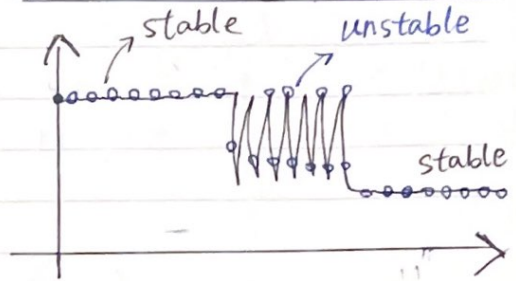 stable
unstable
stable